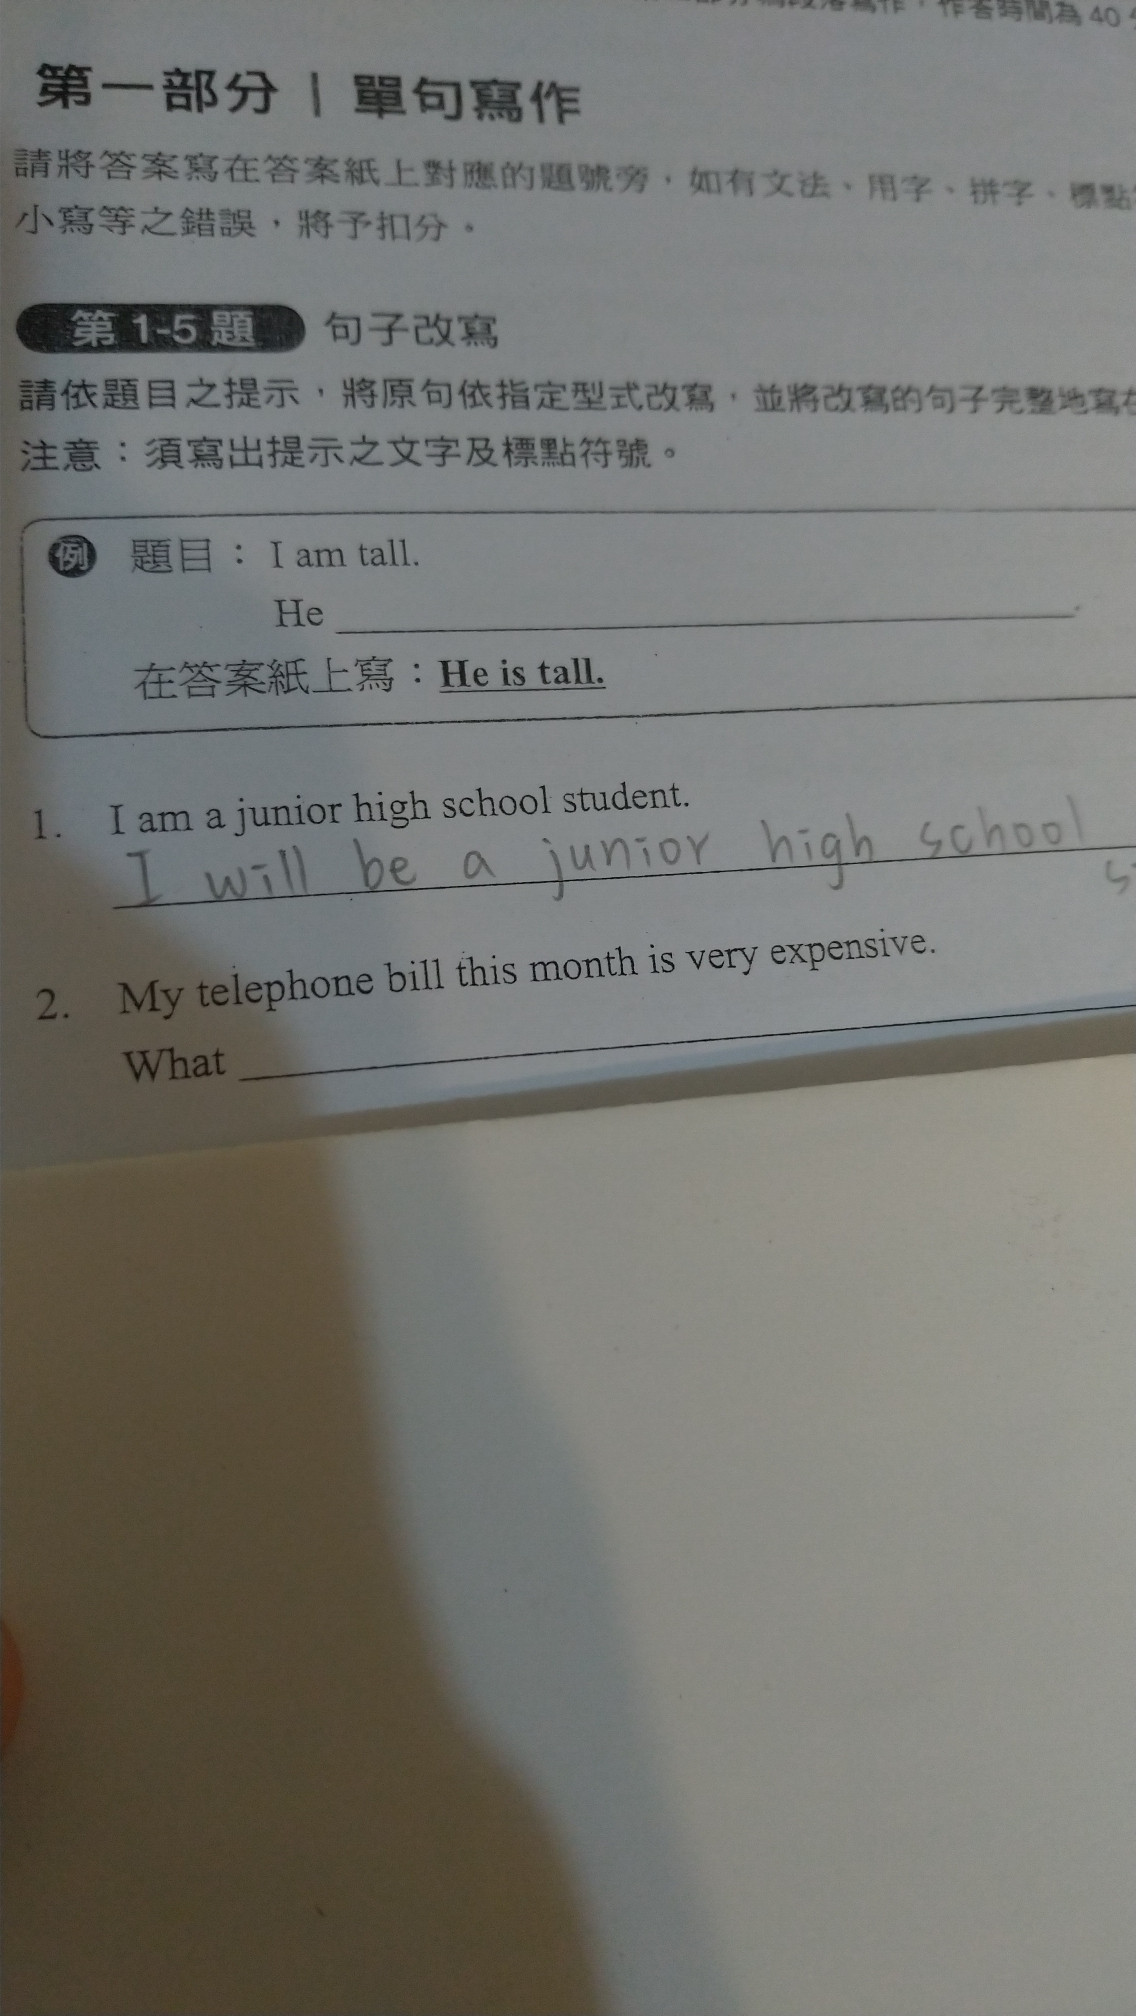 作答時間為 40
第一部分 | 單句寫作
請將答案寫在答案紙上對應的題號旁，如有文法、用字、拼字、標點
小寫等之錯誤，將予扣分。
第 1-5 題 句子改寫
請依題目之提示，將原句依指定型式改寫，並將改寫的句子完整地寫在
注意：須寫出提示之文字及標點符號。
例 題目： I am tall.
He ______.
在答案紙上寫：He is tall.
1. I am a junior high school student.
I will be a junior high school
2. My telephone bill this month is very expensive.
What ______